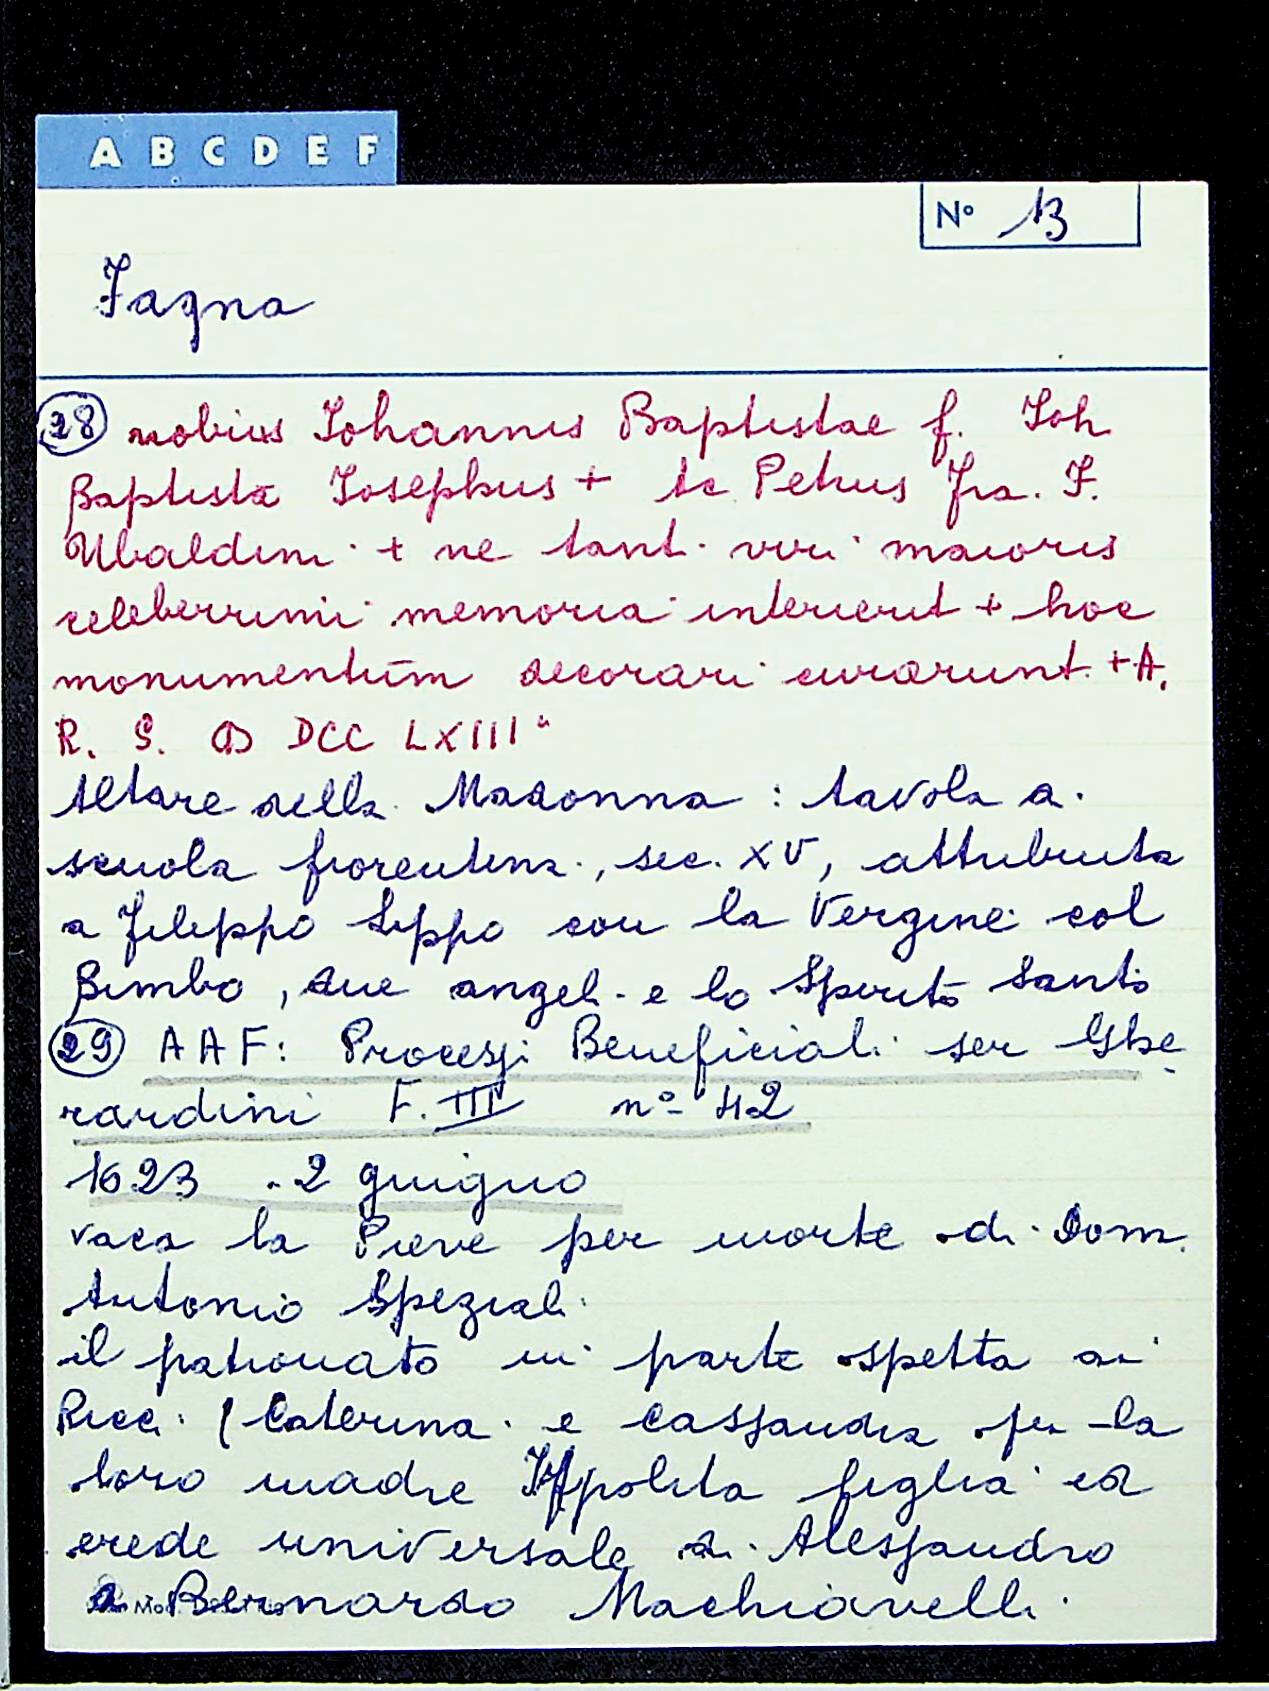 A B C D E F
N° 13
Fagna
28 nobius Iohannis Baptistae f. Ioh
Baptista Iosephus + te Petrus Fra. F.
Ubaldini + ne tanti viri maioris
celeberrimi memoria interierit + hoc
monumentūm decorari curarunt + A.
R. S. CIƆ DCC LXIII"
Altare della Madonna : tavola di
scuola fiorentina, sec. XV, attribuita
a Filippo Lippo con la Vergine col
Bimbo, due angeli e lo Spirito Santo
29 AAF: Processi Beneficiali ser Ghe
rardini F. III n° 42
1623 - 2 giugno
vaca la Pieve per morte di Dom.
Antonio Speziali
il patronato in parte spetta ai
Ricci (Caterina e Cassandra per la
loro madre Ippolita figlia ed
erede universale di Alessandro
di Bernardo Machiavelli.